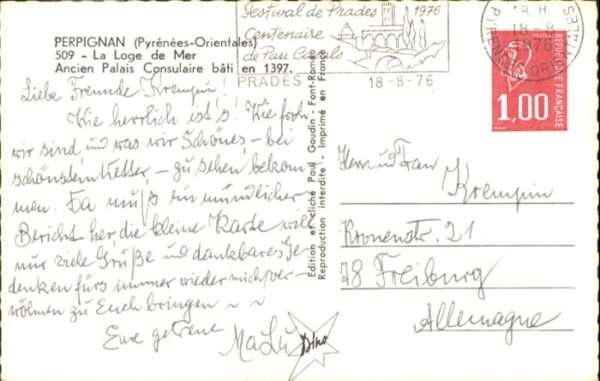 PERPIGNAN (Pyrénées-Orientales)
509 - La Loge de Mer
Ancien Palais Consulaire bâti en 1397.
Liebe Freunde Krempin!
Wie herrlich ist's! Wie froh
wir sind, und was wir Schönes, - bei
schönstem Wetter, - zu sehen bekom
men. Da muß ein mündlicher
Bericht her, die kleine Karte will
nur viele Grüße und dankbares Ge-
denken fürs immer wieder mich ver-
wöhnen zu Euch bringen ~ ~
Eure getreue
MaLu
Dino
Edition et cliché Paul Gaudin - Font-Romeu
Reproduction interdite - Imprimé en France
Festival de Prades 1976
Centenaire
de Pau Casals
PRADES 18-8-76
18 H
18-8
1976
PYRENEES ORIENT
1,00
REPUBLIQUE FRANÇAISE
Herr und Frau
Krempin
Kronenstr. 21
78 Freiburg
Allemagne